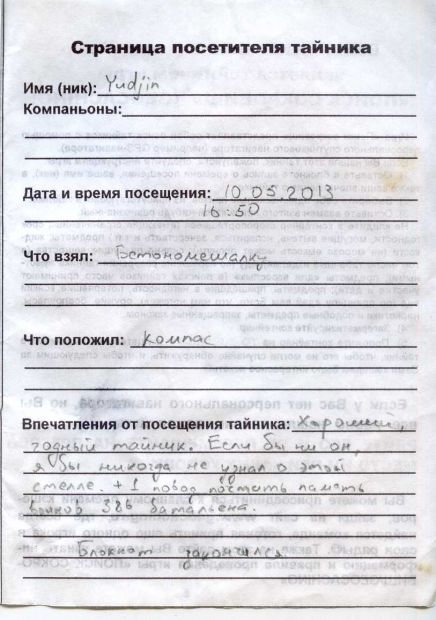 Страница посетителя тайника
Имя (ник): Yudjin
Компаньоны:
Дата и время посещения: 10 05. 2013
16:50
Что взял: Бетономешалку
Что положил: компас
Впечатления от посещения тайника: Хороший,
годный тайник. Если бы ни он,
я бы никогда не узнал о этой
стелле. +1 повод почтить память
воинов 386 батальена.
Блокнот закончился